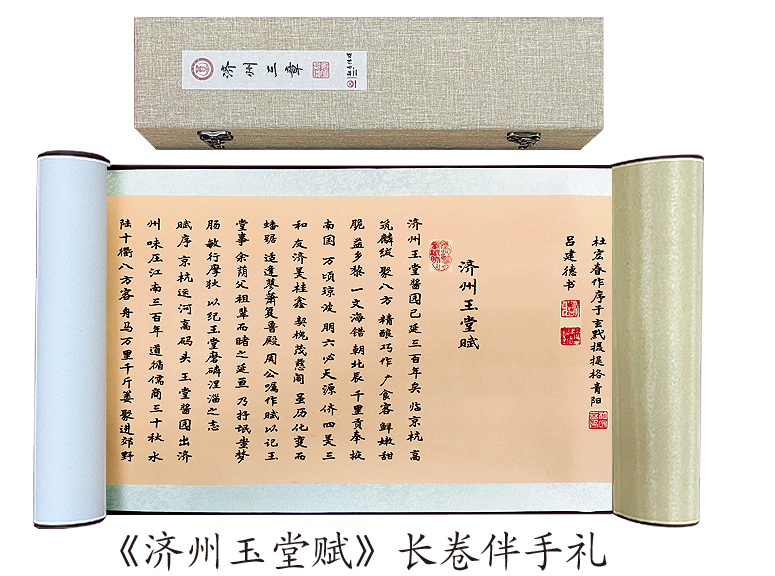 济州三章
杜宏春作序于玄黓摄提格青阳
吕建德书
济州玉堂赋
济州玉堂酱园已延三百年矣 临京杭 高
筑麟绂 聚八方 精酿巧作 广食客 鲜嫩甜
脆 益乡黎 一文海错 朝北辰 千里贡奉 掖
南国 万顷琼波 朋六必天源 侪四美三
和 友济美桂鑫 契槐茂慈阁 虽历化变而
蟠踞 适逢蓼萧复鲁殿 周公嘱作赋以记玉
堂事 余荫父祖辈而睹之延亘 乃抒氓蚩梦
肠 敏行摩狄 以纪玉堂磨磷涅淄之志
赋序 京杭运河高码头 玉堂酱园出济
州 味压江南三百年 道循儒商三十秋 水
陆十衢八方客 舟马万里千斤姜 聚进郊野
《济州玉堂赋》长卷伴手礼